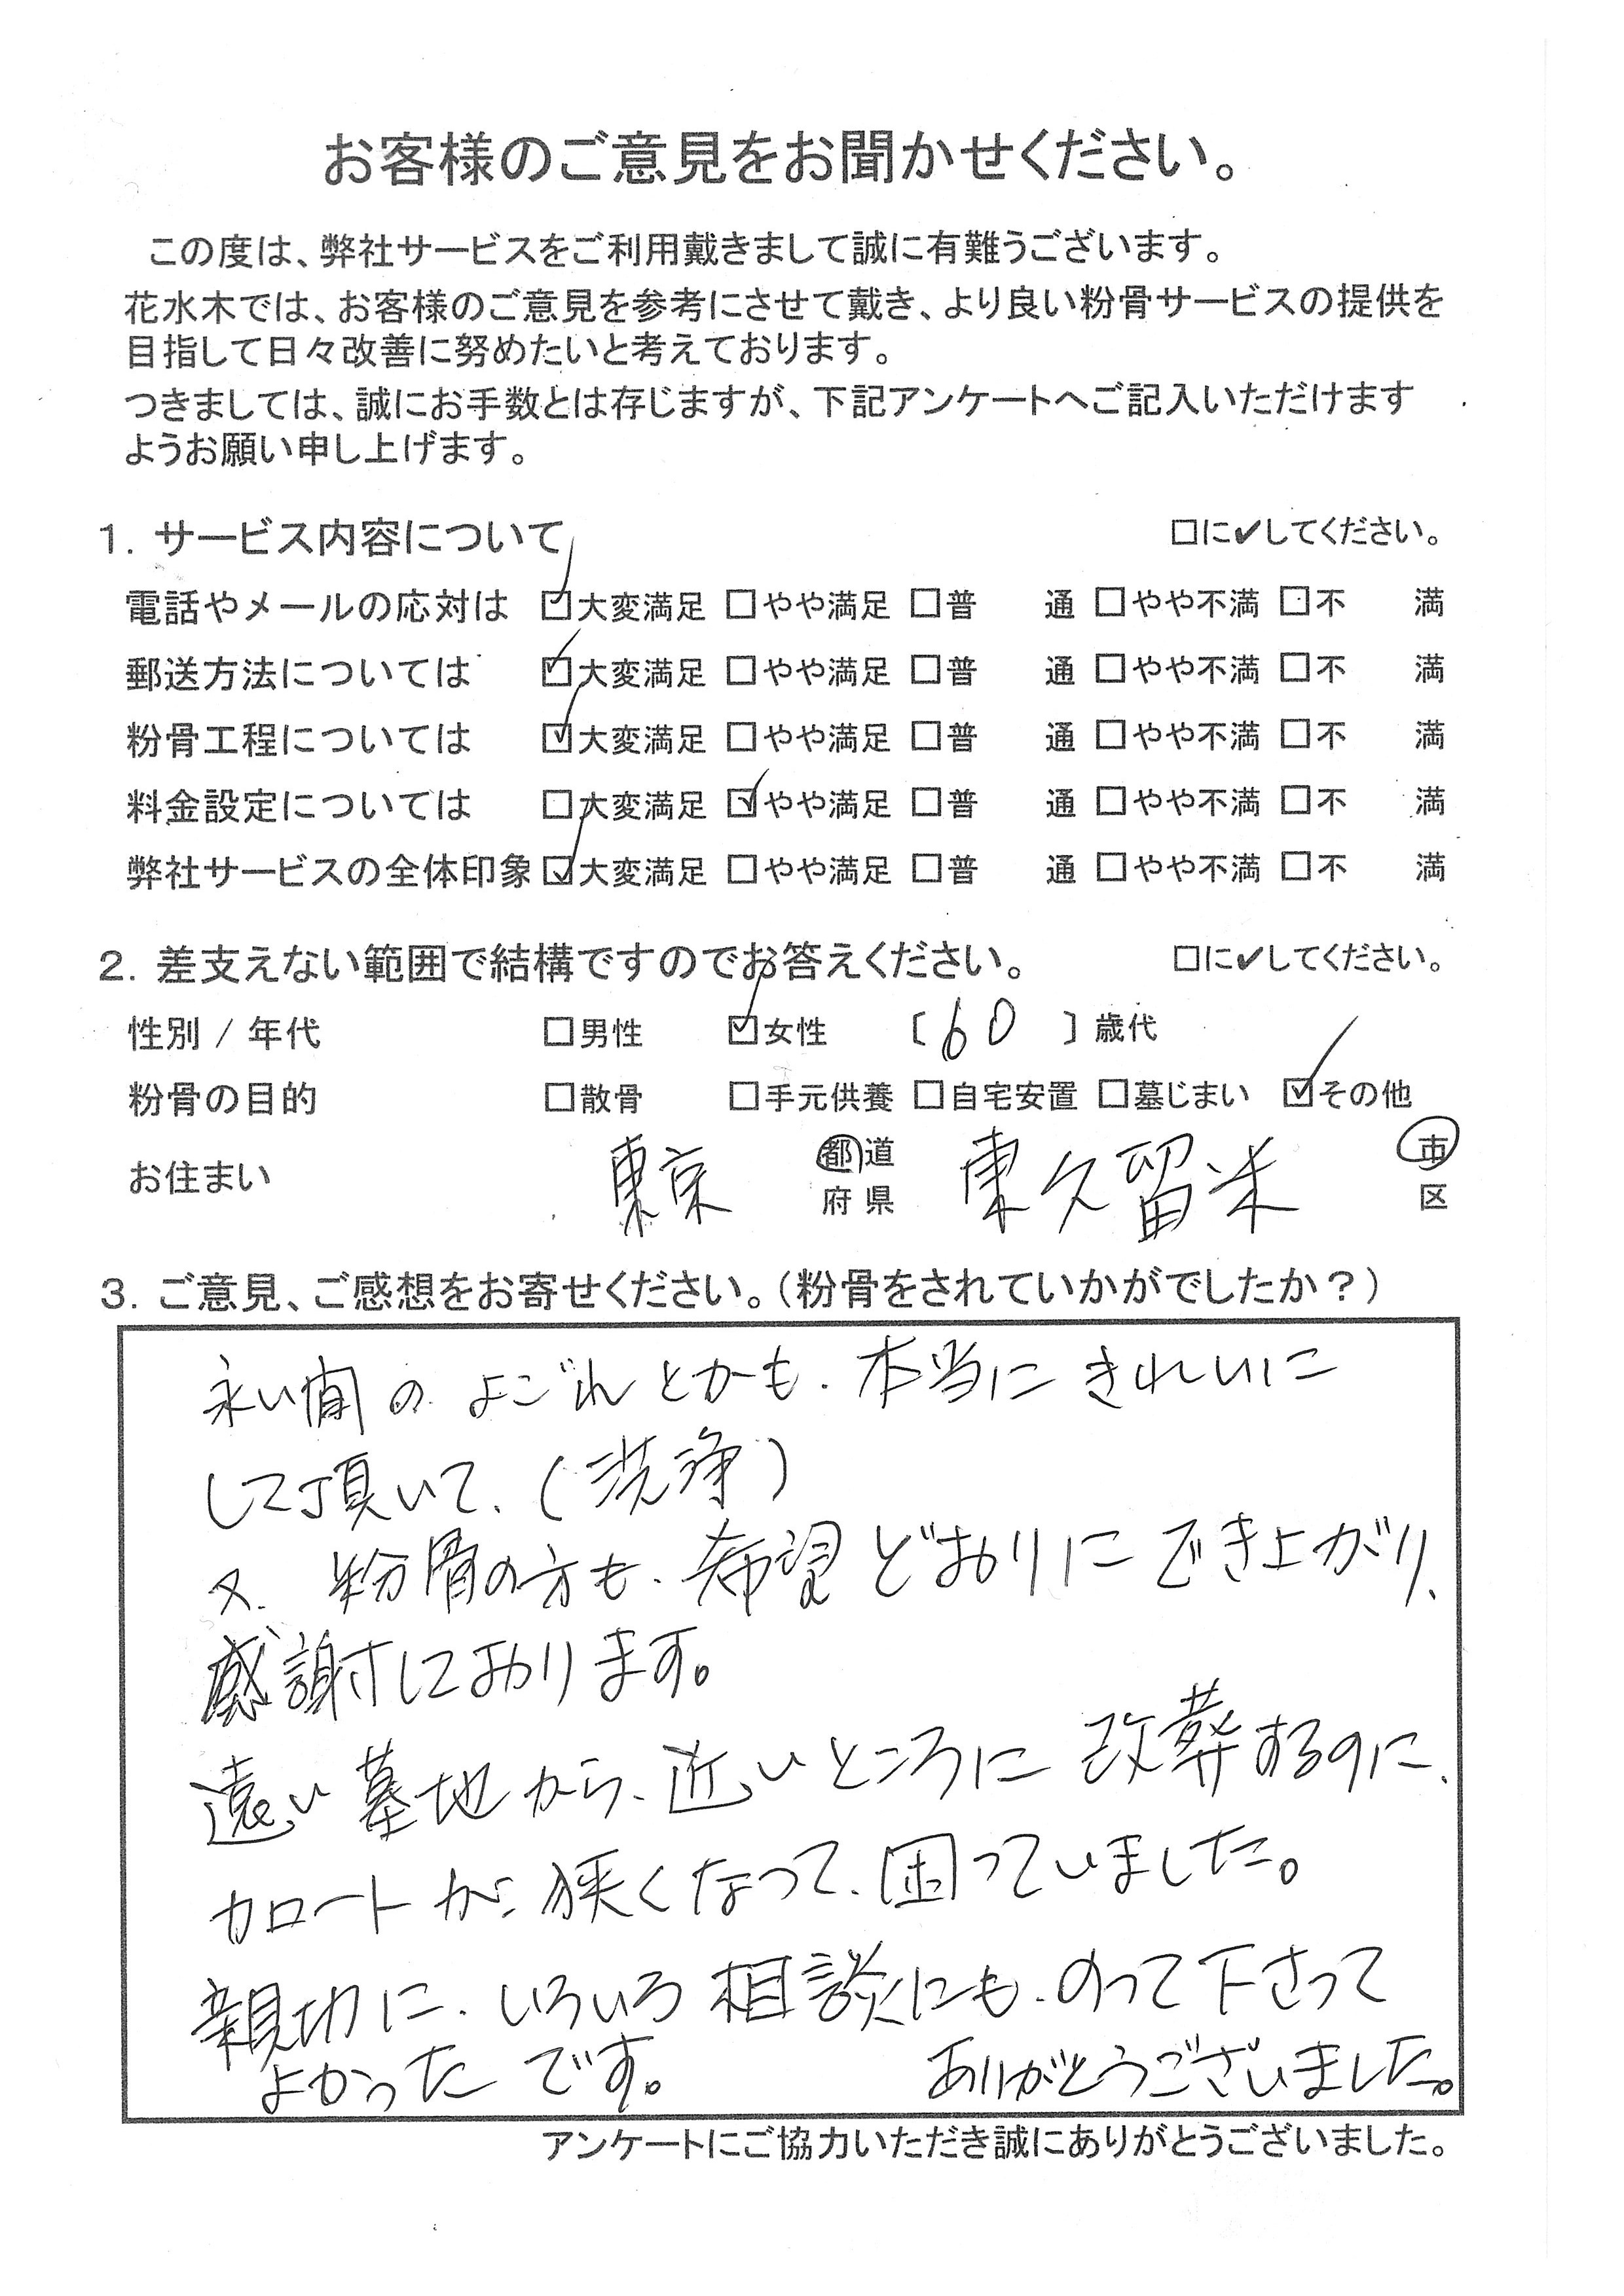 お客様のご意見をお聞かせください。
この度は、弊社サービスをご利用戴きまして誠に有難うございます。
花水木では、お客様のご意見を参考にさせて戴き、より良い粉骨サービスの提供を
目指して日々改善に努めたいと考えております。
つきましては、誠にお手数とは存じますが、下記アンケートへご記入いただけます
ようお願い申し上げます。
1. サービス内容について □に✔してください。
電話やメールの応対は ☑大変満足 □やや満足 □普 通 □やや不満 □不 満
郵送方法については ☑大変満足 □やや満足 □普 通 □やや不満 □不 満
粉骨工程については ☑大変満足 □やや満足 □普 通 □やや不満 □不 満
料金設定については □大変満足 ☑やや満足 □普 通 □やや不満 □不 満
弊社サービスの全体印象 ☑大変満足 □やや満足 □普 通 □やや不満 □不 満
2. 差支えない範囲で結構ですのでお答えください。 □に✔してください。
性別 / 年代 □男性 ☑女性 〔 60 〕歳代
粉骨の目的 □散骨 □手元供養 □自宅安置 □墓じまい ☑その他
お住まい 東京 都道府県 東久留米 市区
3. ご意見、ご感想をお寄せください。(粉骨をされていかがでしたか?)
永い間の よごれとかも、本当に きれいに
して頂いて、(洗浄)
又、粉骨の方も、希望どおりに でき上がり、
感謝しております。
遠い墓地から、近いところに 改葬するのに、
カロートが、狭くなって、困っていました。
親切に、いろいろ相談にも、のって下さって
よかったです。 ありがとうございました。
アンケートにご協力いただき誠にありがとうございました。